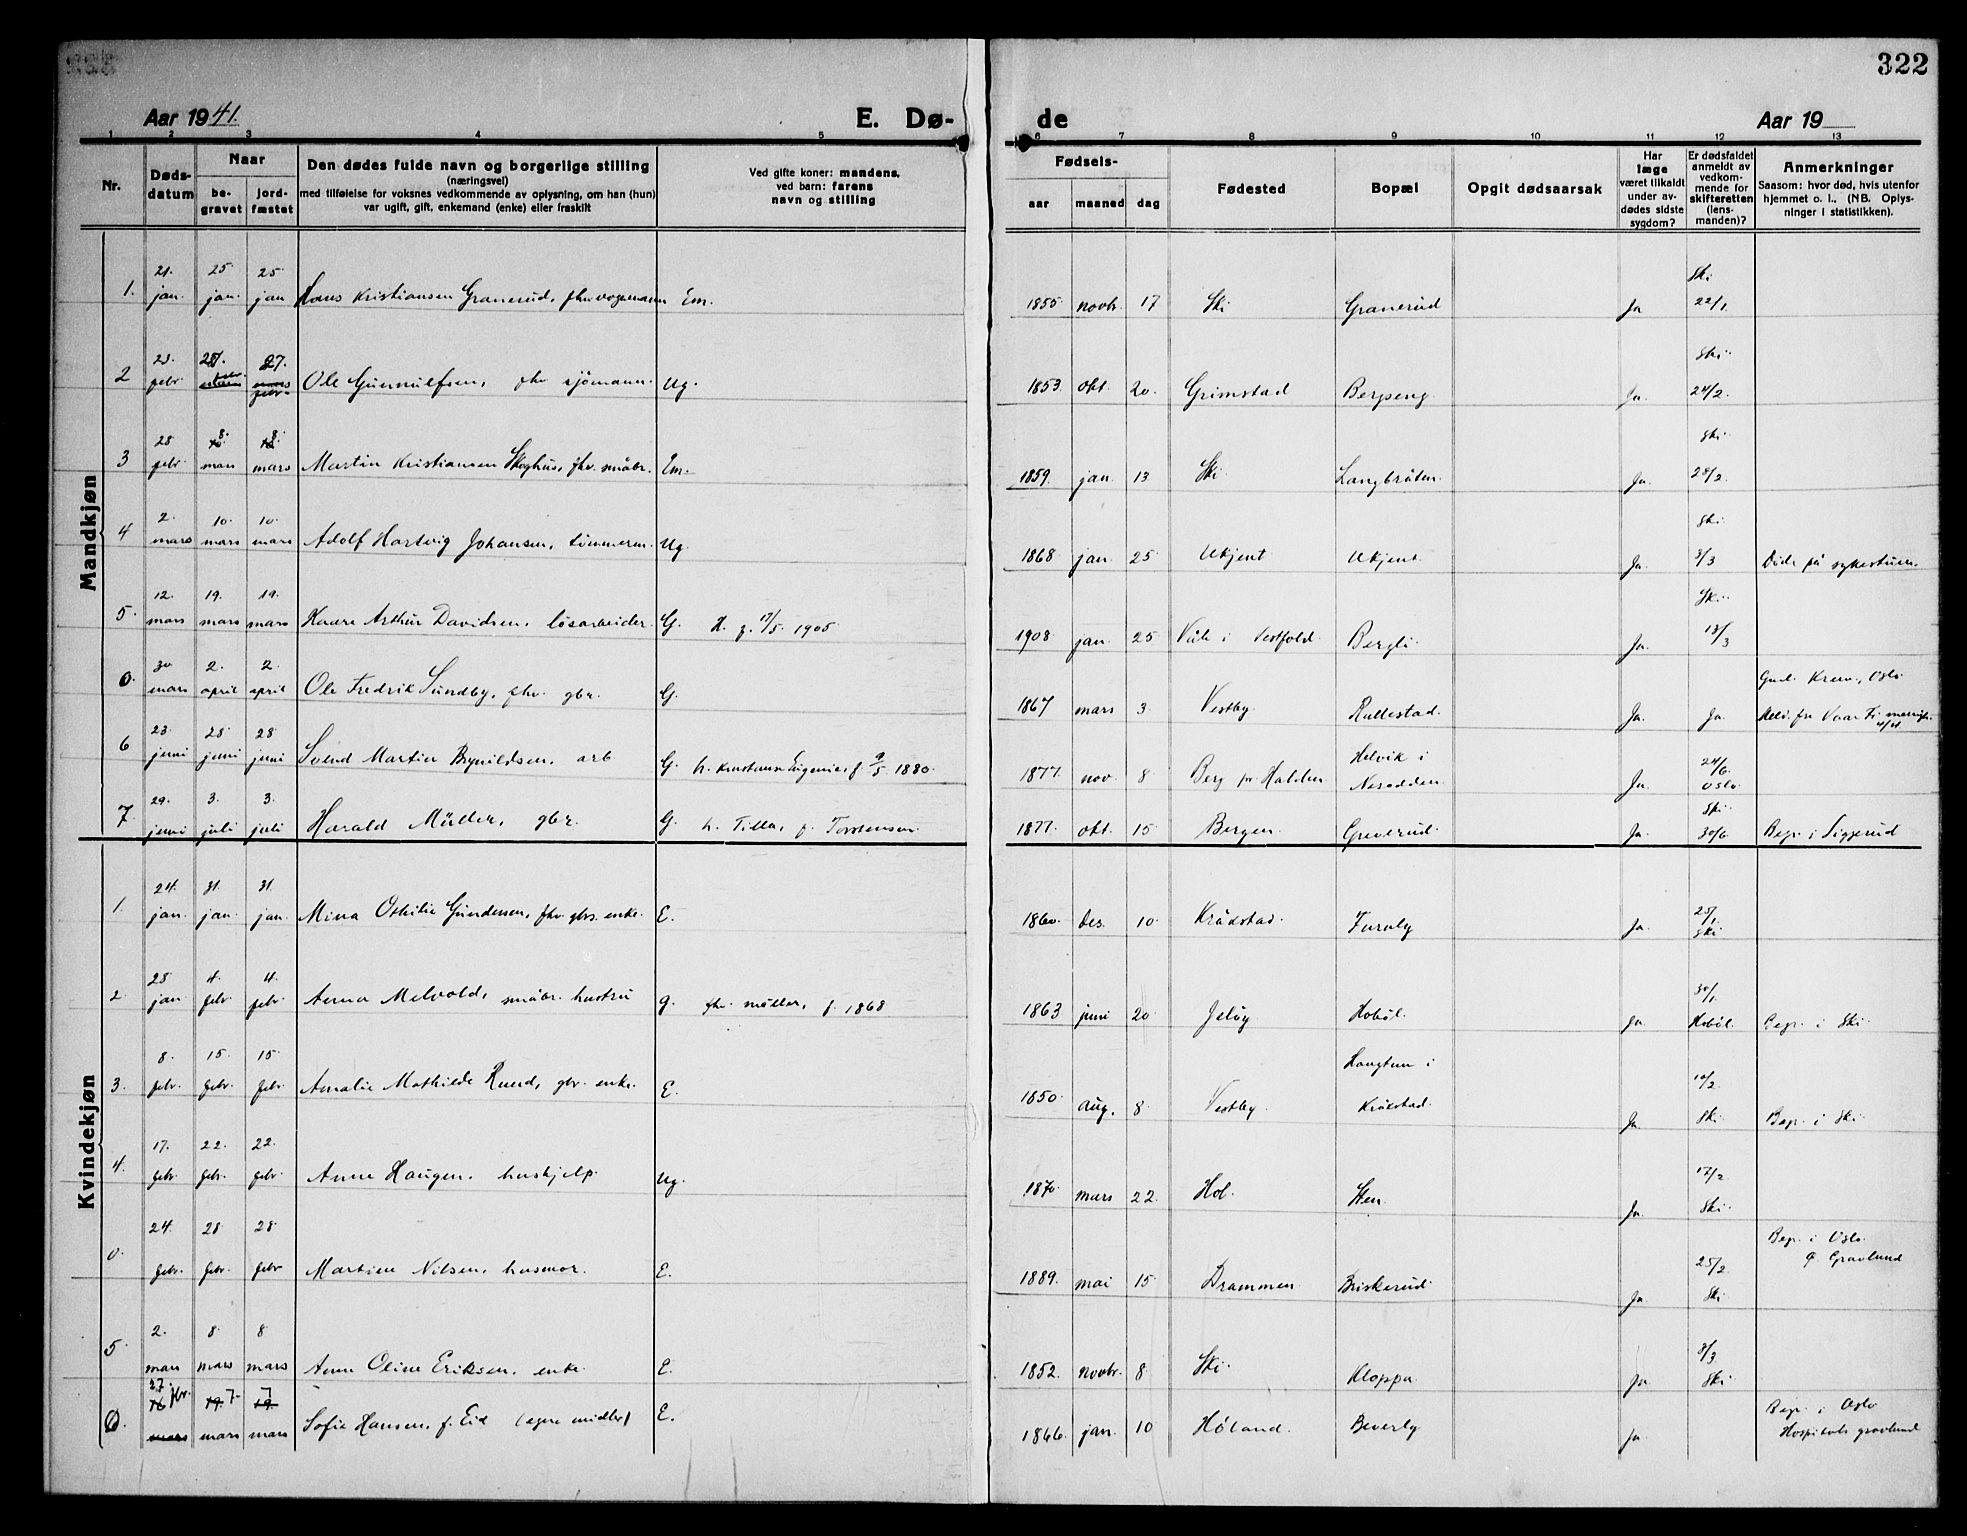 322
Aar 1941.
E. Dø-
de
Aar 19
1 2 3 4 5 6 7 8 9 10 11 12 13
Nr.
Døds-
datum
Naar
be-
gravet
jord-
fæstet
Den dødes fulde navn og borgerlige stilling
(næringsvei)
med tilføielse for voksnes vedkommende av oplysning, om han (hun)
var ugift, gift, enkemand (enke) eller fraskilt
Ved gifte koner: mandens,
ved barn: farens
navn og stilling
Fødsels-
aar maaned dag
Fødested
Bopæl
Opgit dødsaarsak
Har
læge
været tilkaldt
under av-
dødes sidste
sygdom?
Er dødsfaldet
anmeldt av
vedkom-
mende for
skifteretten
(lens-
manden)?
Anmerkninger
Saasom: hvor død, hvis utenfor
hjemmet o. l., (NB. Oplys-
ninger i statistikken).
Mandkjøn
1. 21. jan. 25. jan. 25. jan Hans Kristiansen Granerud, fhv. vognmann Em. 1855 novbr. 17 Ski Granerud Ja Ski 22/1
2 23. febr. 27. febr. 27. febr. Ole Gunnulfsen, fhv. sjömann. Ug. 1853. okt. 20. Grimstad Bergseng Ja. Ski 24/2.
3 28 febr. 8. mars 8. mars Martin Kristiansen Skoghus, fhv. småbr. Em. 1859. jan. 13 Ski. Langbråten. Ja. Ski. 28/2.
4 2. mars 10. mars 10. mars Adolf Hartvig Johansen, tömmerm. Ug. 1868 jan. 25. Ukjent Ukjent. Ja. Ski. 3/3 Döde på sykestuen.
5. 12. mars 19. mars 19. mars Kaare Arthur Davidsen. løsarbeider G. 1905 1908 jan. 25 Våle i Vestfold. Bergli. Ja. Ski. 13/3
0. 30 mars 2. april 2. april Ole Fredrik Sundby, fhv. gbr. G. 1867 mars 3. Vestby. Rullestad. Ja. Ja. Krem., Oslo
6 23. juni 28 juni 28 juni Svend Martin Bynildsen, arb G. Eugenie, f. 9/5 1880. 1877. nov. 8 Berg pr Halden Helvik i Nesodden. Ja. 24/6. Oslo
7. 29. juni 3. juli 3. juli Harald Müller, gbr. G. h. Tilla, f. Torstensen. 1877. okt. 15 Bergen. Greverud. Ja. Ski 30/6. Begr. i Siggerud
Kvindekjøn
1. 24. jan. 31. jan. 31. jan. Mina Othilie Gundersen, fhv. gbs. enke. E. 1860. des. 10. Kråkstad. Furuly Ja. 25/1. Ski
2. 28 jan 4. febr. 4. febr. Anna Melvold, småbr. hustru g. fhv. möller, f. 1868 1863 juni 20. Jeløy Hobøl. Ja 30/1. Hobøl. Begr. i Ski.
3. 8. febr. 15. febr. 15. febr. Amalie Mathilde Ruud, gbr. enke. E. 1850. aug. 8. Vestby. Haugtun i Kråkstad. Ja. 10/2. Ski. Begr. i Ski.
4. 17. febr. 22. febr. 22. febr. Anne Haugen. hushjelp. Ug. 1870. mars 22. Hol. Sten. Ja. 17/2 Ski.
0. 24. febr. 28 febr. 28 febr Martine Nilsen, husmor. E. 1889. mai 15. Drammen. Briskerud. Ja. 25/2. Ski. Begr. i Oslo. Gravlund
5 2. mars 8 mars 8 mars Anne Oline Eriksen, enke. E. 1852. novbr. 8. Ski. Kloppa. Ja 3/3 Ski.
0. 27. fbr. 16 mars 19. 7. mars 19. 7 mars Sofie Hansen, f. Eid (egne midler) E. 1866. jan. 10 Høland. Beverly Ja Begr. i Oslo Hospitals gravlund